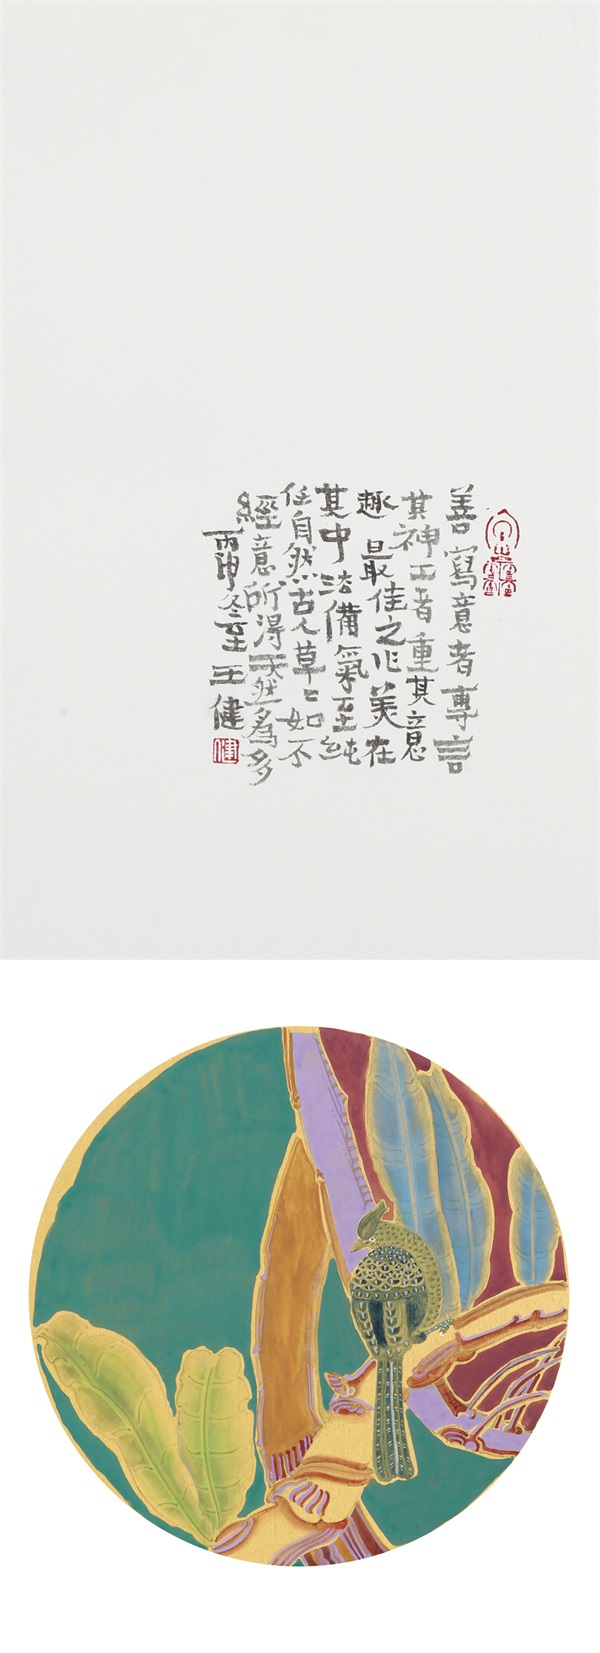 善寫意者專言
其神工者重其意
趣最佳之作美在
其中法備氣至純
任自然古人草〻如不
經意所得天然為多
丙申冬至王健
健